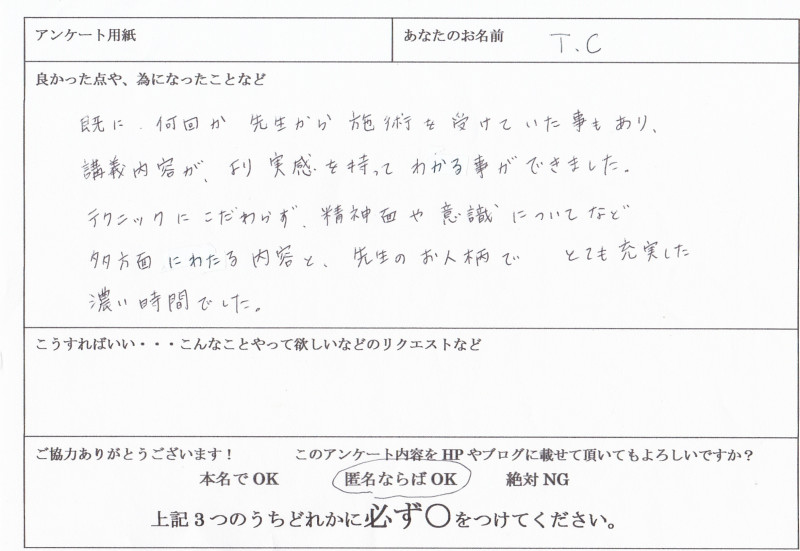 アンケート用紙
あなたのお名前 T.C
良かった点や、為になったことなど
既に、何回か 先生から 施術を 受けていた事もあり、
講義内容が、より 実感を持って わかる事ができました。
テクニックにこだわらず、精神面や 意識についてなど
多方面にわたる内容と、先生のお人柄で とても充実した
濃い時間でした。
こうすればいい・・・こんなことやって欲しいなどのリクエストなど
ご協力ありがとうございます！ このアンケート内容をHPやブログに載せて頂いてもよろしいですか？
本名でOK 匿名ならばOK 絶対NG
上記3つのうちどれかに必ず〇をつけてください。